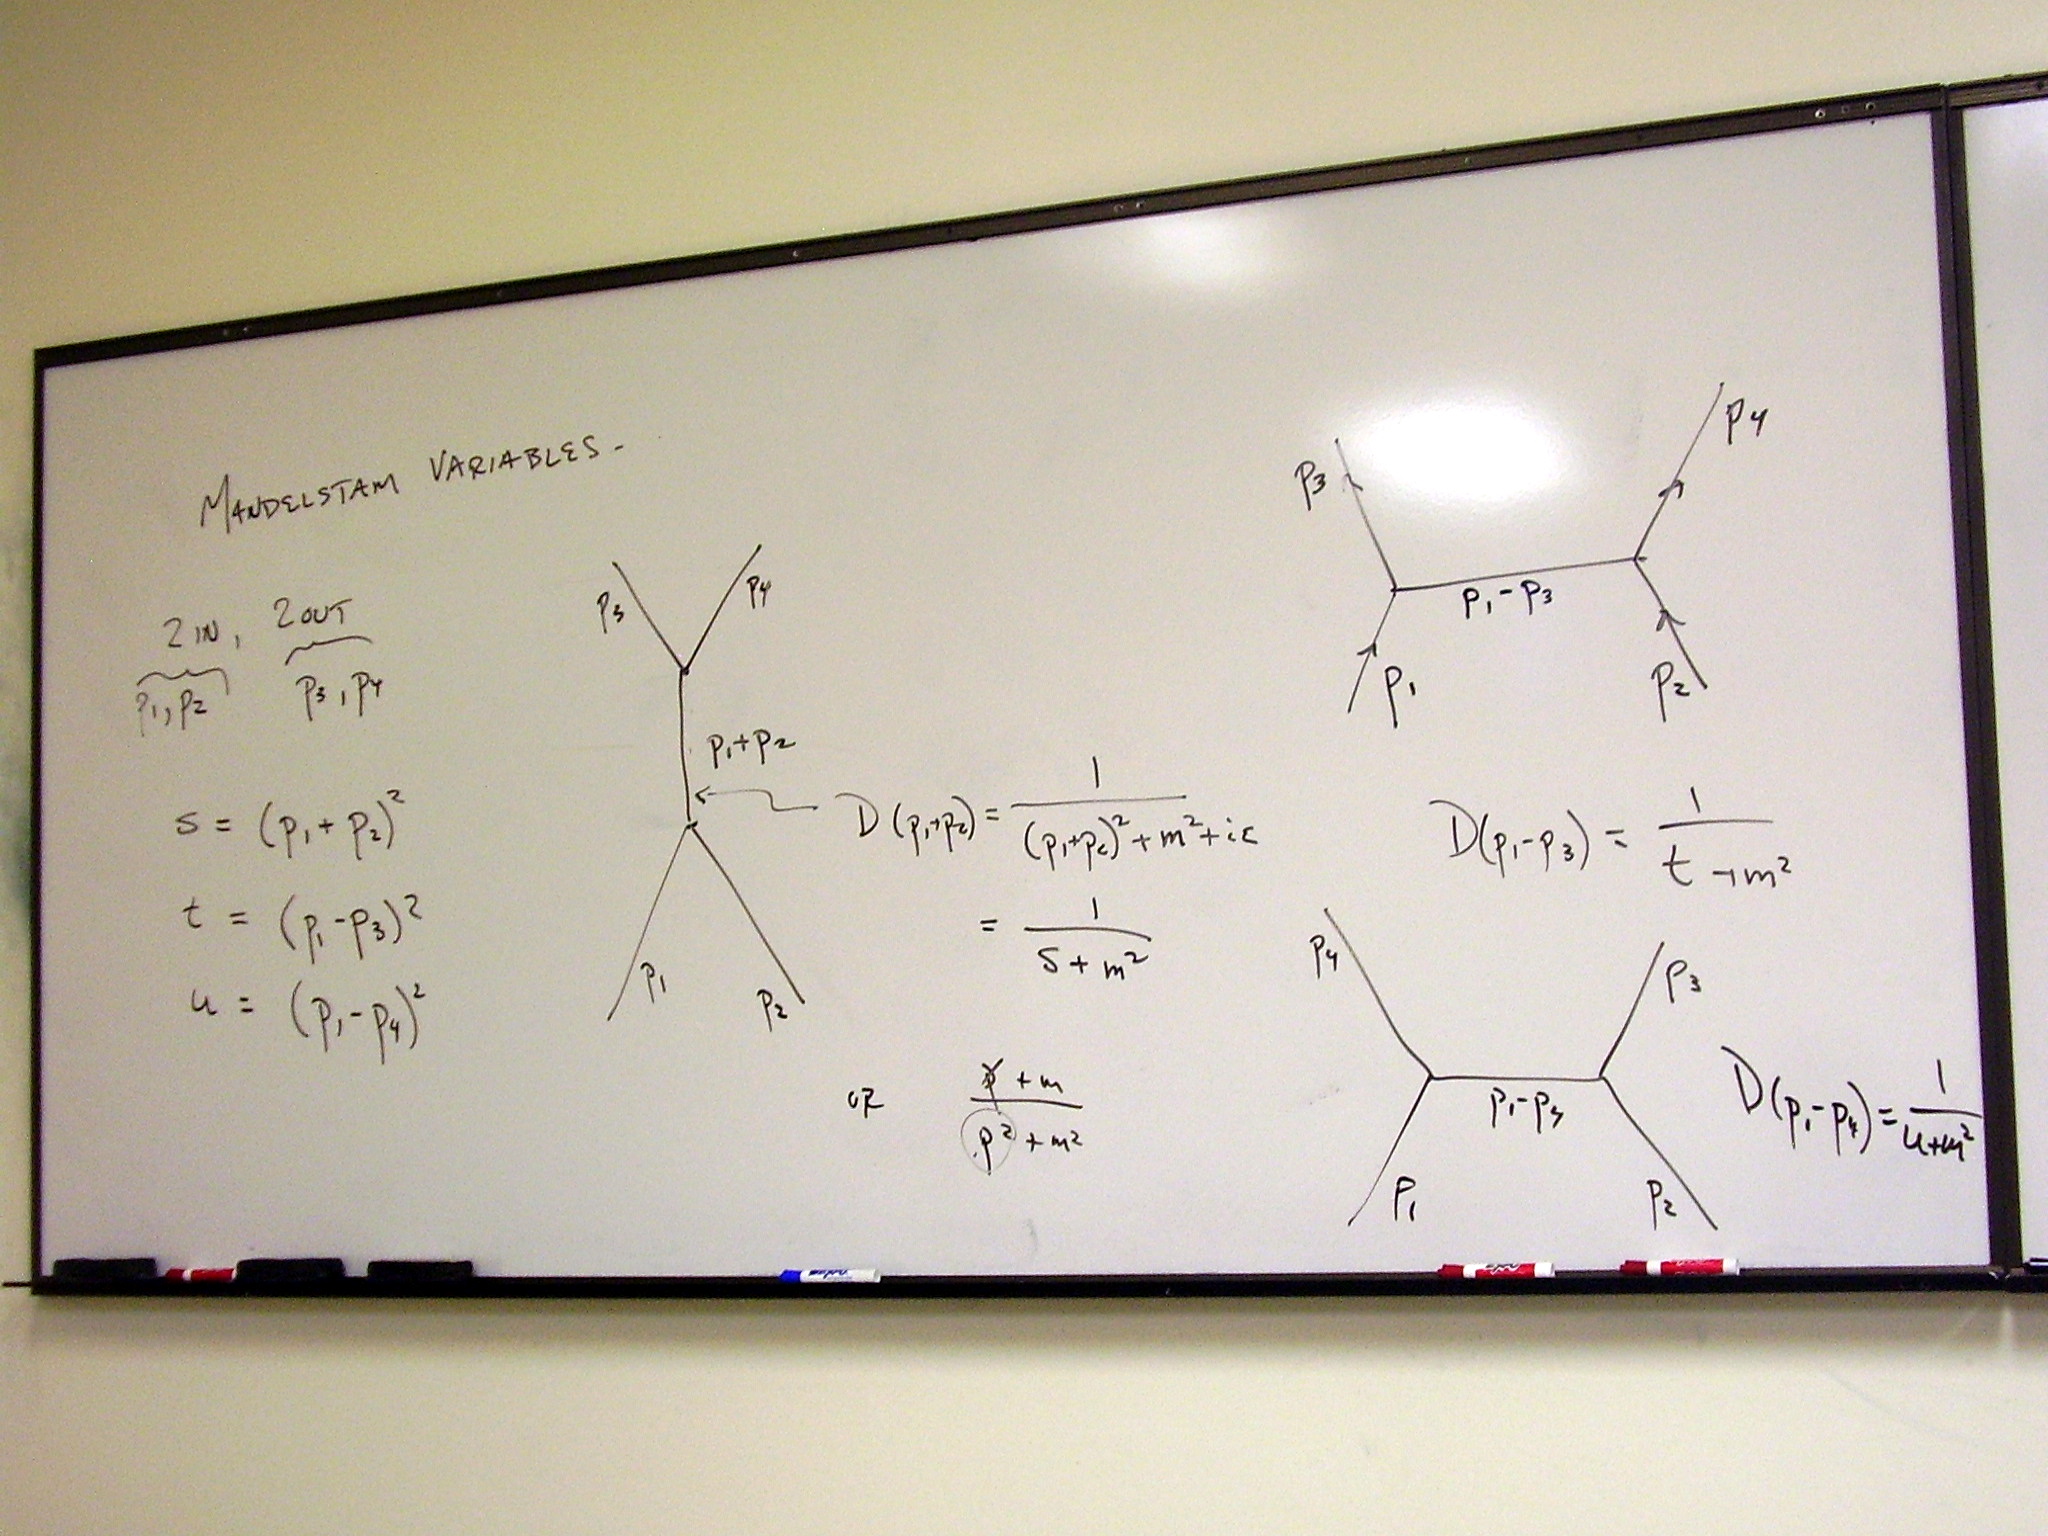 MANDELSTAM VARIABLES -
2 IN, 2 OUT
p₁, p₂ p₃, p₄
s = (p₁ + p₂)²
t = (p₁ - p₃)²
u = (p₁ - p₄)²
p₃ p₄
p₁+p₂
p₁ p₂
D(p₁+p₂) = 1/((p₁+p₂)² + m² + iε)
= 1/(s + m²)
OR (p̸ + m)/(p² + m²)
p₃ p₄
p₁ - p₃
p₁ p₂
D(p₁-p₃) = 1/(t + m²)
p₄ p₃
p₁-p₄
p₁ p₂
D(p₁-p₄) = 1/(u+m²)